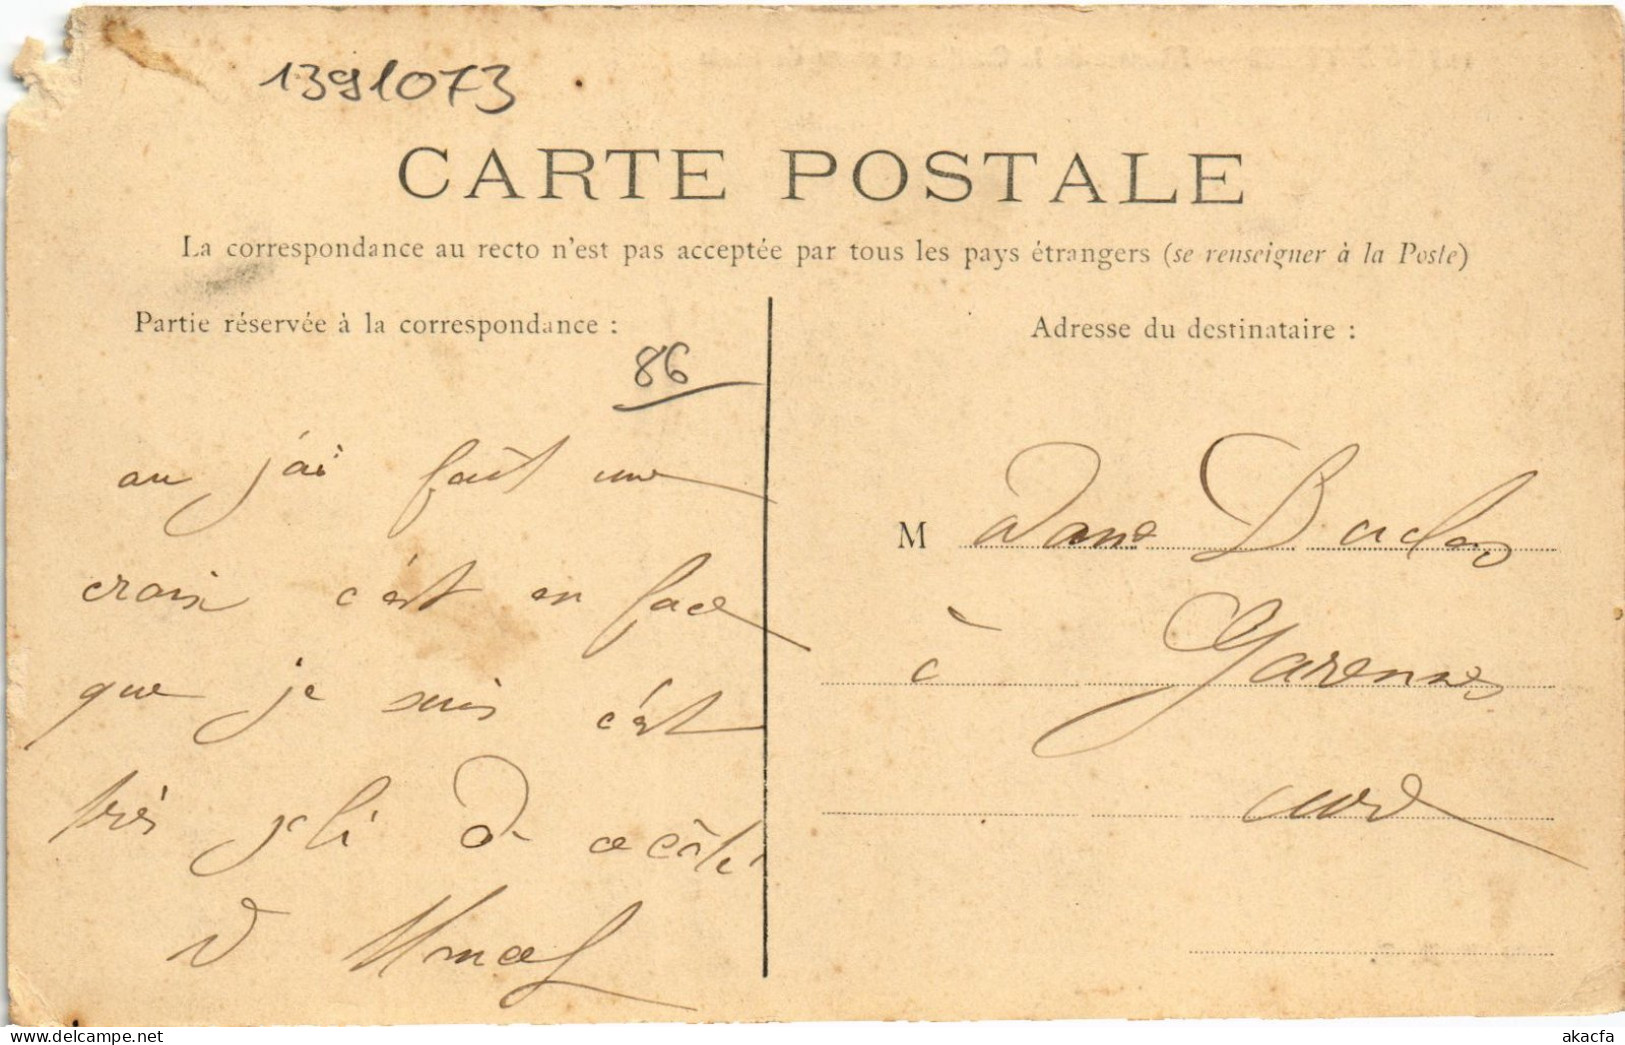 1391073
CARTE POSTALE
La correspondance au recto n'est pas acceptée par tous les pays étrangers (se renseigner à la Poste)
Partie réservée à la correspondance :
Adresse du destinataire :
86
ou j'ai fait une
croix c'est en face
que je suis c'est
très joli de ce côté
Marcel
M adame
à Garennes
eure
akacfa